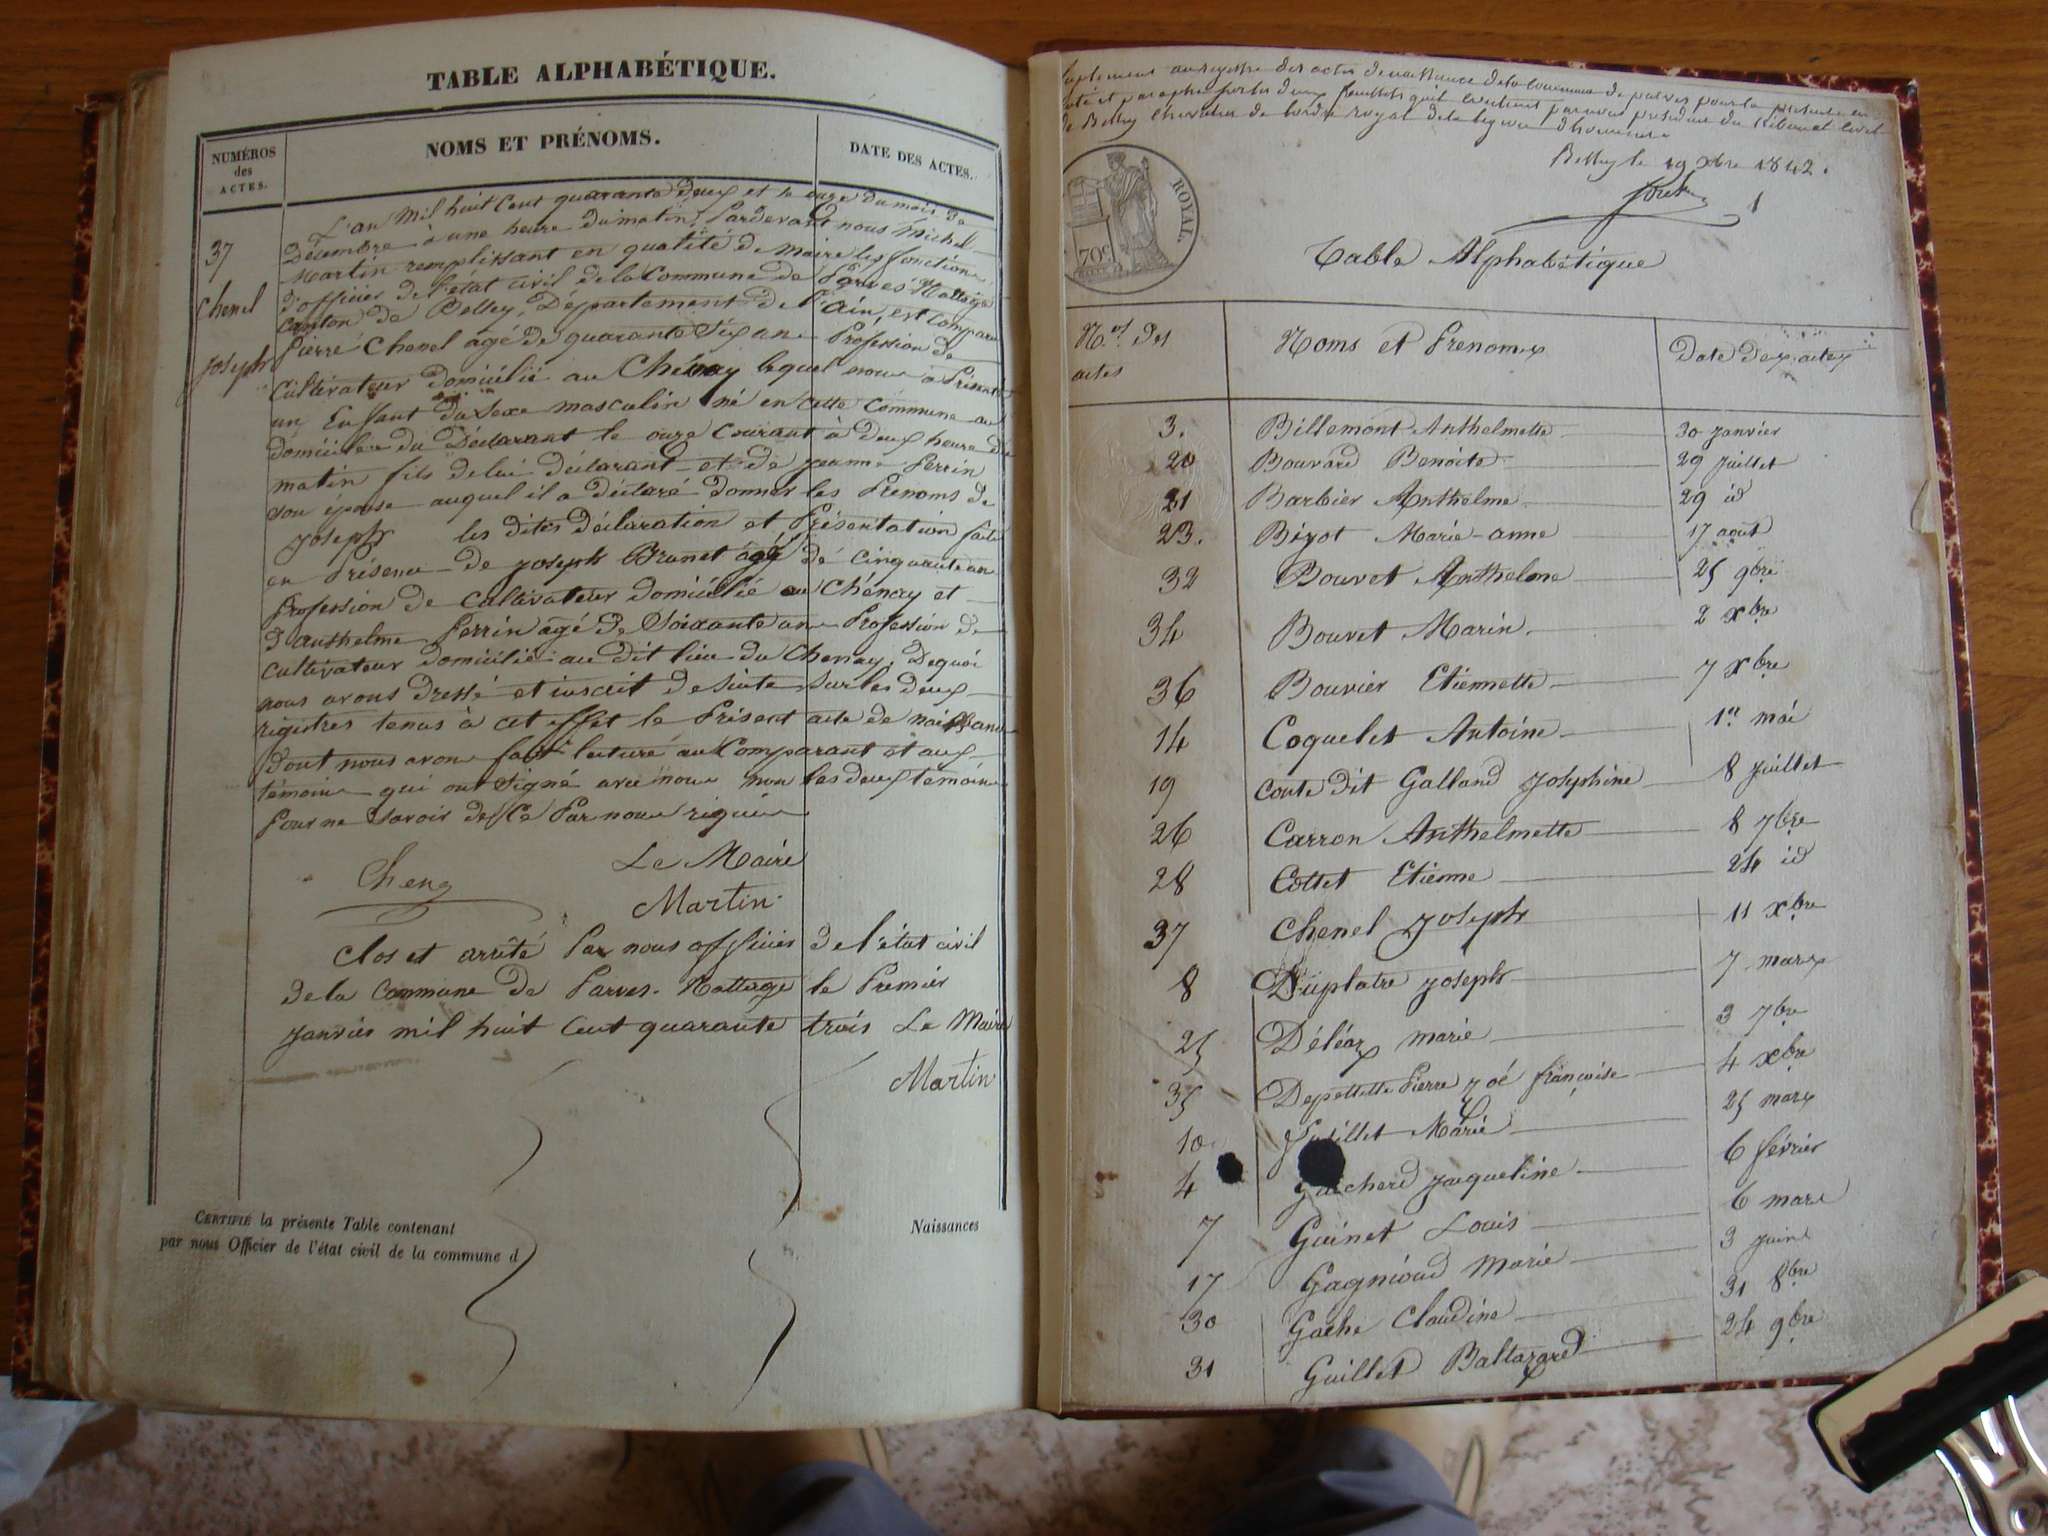 TABLE ALPHABÉTIQUE.
NUMÉROS des ACTES.
NOMS ET PRÉNOMS.
DATE DES ACTES.
L'an Mil huit Cent quarante deux et le onze du mois de
37
Décembre à une heure du matin, Pardevant nous Michel
Martin remplissant en qualité de Maire les fonctions
d'officier de l'état civil de la Commune de Parves Nattage
Chenel
canton de Belley, Département de l'Ain, est comparu
Pierre Chenel agé de quarante Six ans Profession de
Joseph
Cultivateur domicilié au Chénay lequel nous a Présenté
un Enfant du Sexe masculin né en cette Commune au
domicile du Déclarant le onze Courant à deux heure du
matin fils de lui déclarant et de jeanne Perrin
son épouse auquel il a déclaré donner les Prenoms de
Joseph les dites déclaration et Présentation faite
en Présence de Joseph Brunet âgé de cinquante an
Profession de Cultivateur domicilié au Chénay et
d'Anthelme Perrin agé de Soixante ans Profession de
Cultivateur domicilié au dit lieu du Chenay, Dequoi
nous avons dressé et inscrit de Suite Sur les deux
régistres tenus à cet effet le Présent acte de naissance
dont nous avons fait lecture au Comparant et aux
témoins qui ont Signé avec nous non les deux témoins
Pour ne Savoir de ce Par nous
Le Maire
Martin
Clos et arrêté Par nous officier de l'état civil
de la Commune de Parves-Nattage le Premier
Janvier mil huit Cent quarante trois Le Maire
Martin
CERTIFIÉ la présente Table contenant
Naissances
par nous Officier de l'état civil de la commune d
Suplement au registre des actes de naissance de la commune de parves pour la presente
et paraphé par nous president du tribunal civil
de Belley Chevalier de l'ordre royal de la legion d'honneur
Belley le 19 Xbre 1842.
1
ROYAL.
70c
Table Alphabétique
N.os des actes
Noms et Prenoms
Date des actes
3. Billemont Anthelmette 30 Janvier
20 Bouvard Benoite 29 Juillet
21 Barbier Anthelme 29 id
23. Bizot Marie-anne 17 aout
32 Bouvet Anthelme 25 9bre
34 Bouvet Marin 2 Xbre
36 Bouvier Etiennette 7 Xbre
14 Coquelet Antoine 1er mai
19 Conte dit Galland Josephine 8 Juillet
26 Carron Anthelmette 8 7bre
28 Cottet Etienne 24 id
37 Chenel Joseph 11 Xbre
8 Duplatre Joseph 7 mars
25 Déléaz marie 3 7bre
35 Pierre Zoé françoise 4 Xbre
10 Marie 25 mars
4 Guicherd Jaqueline 6 février
7 Guinet Louis 6 mars
17 Gagnioud Marie 3 Juin
30 Gache Claudine 31 8bre
31 Guillet Baltazard 24 9bre